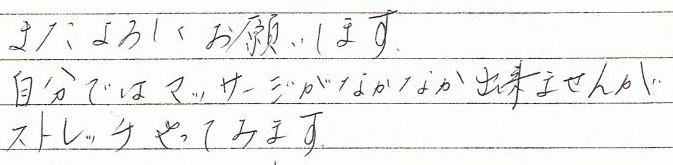 またよろしくお願いします.
自分ではマッサージがなかなか出来ませんが
ストレッチやってみます